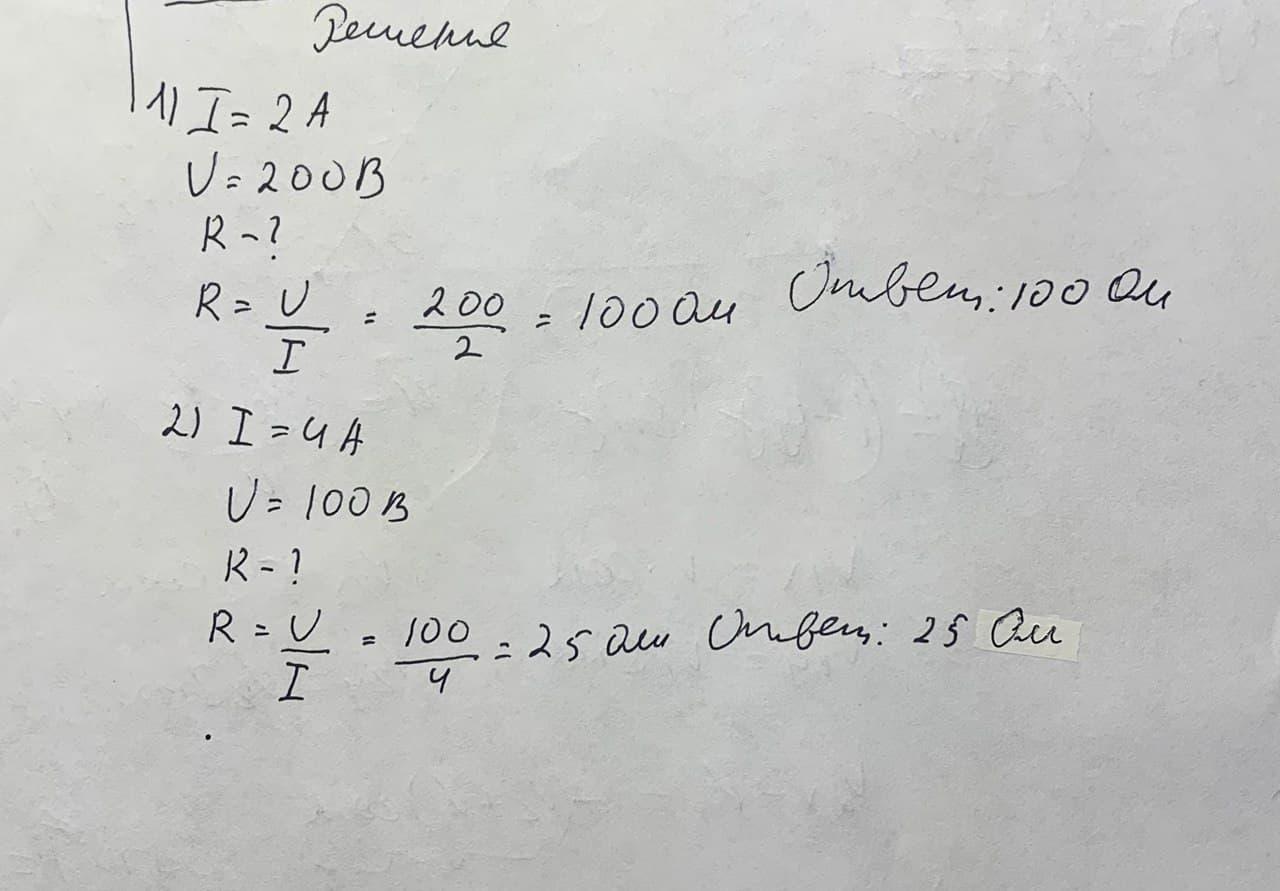 Решение
1) I = 2 А
U = 200 В
R - ?
R = U/I = 200/2 = 100 Ом Ответ: 100 Ом
2) I = 4 А
U = 100 В
R - ?
R = U/I = 100/4 = 25 Ом Ответ: 25 Ом
.